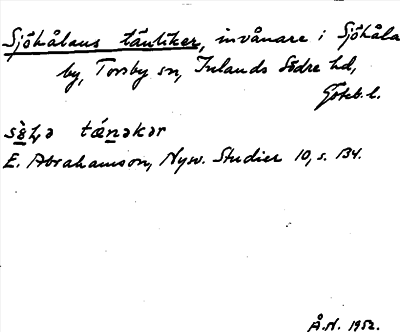 Sjöhålans täntiker, invånare i Sjöhåla
by, Torsby sn, Inlands Södre hd,
Göteb. l.
tǽnəkər
E. Abrahamson, Nysv. Studier 10, s. 134.
Å.H. 1952.